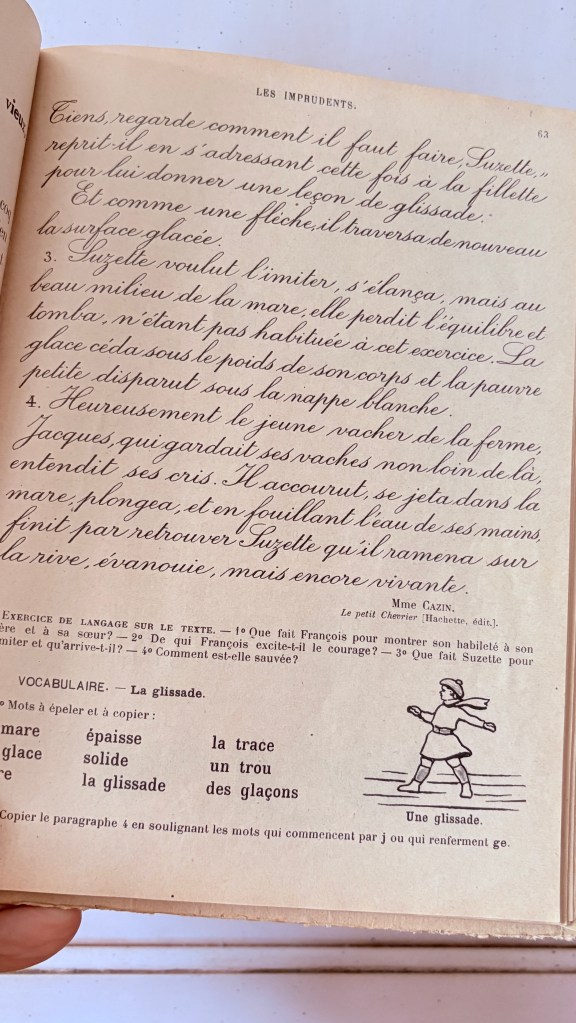 LES IMPRUDENTS.
63
vieux
Tiens, regarde comment il faut faire, Suzette, "
reprit-il en s'adressant cette fois à la fillette
pour lui donner une leçon de glissade.
Et comme une flèche, il traversa de nouveau
la surface glacée.
3. Suzette voulut l'imiter, s'élança, mais au
beau milieu de la mare, elle perdit l'équilibre et
tomba, n'étant pas habituée à cet exercice. La
glace céda sous le poids de son corps et la pauvre
petite disparut sous la nappe blanche.
4. Heureusement le jeune vacher de la ferme,
Jacques, qui gardait ses vaches non loin de là,
entendit ses cris. Il accourut, se jeta dans la
mare, plongea, et en fouillant l'eau de ses mains,
finit par retrouver Suzette qu'il ramena sur
la rive, évanouie, mais encore vivante.
Mme CAZIN.
Le petit Chevrier [Hachette, édit.].
EXERCICE DE LANGAGE SUR LE TEXTE. — 1º Que fait François pour montrer son habileté à son
ère et à sa sœur? — 2º De qui François excite-t-il le courage? — 3º Que fait Suzette pour
miter et qu'arrive-t-il? — 4º Comment est-elle sauvée?
VOCABULAIRE. — La glissade.
º Mots à épeler et à copier :
mare épaisse la trace
glace solide un trou
re la glissade des glaçons
Une glissade.
Copier le paragraphe 4 en soulignant les mots qui commencent par j ou qui renferment ge.